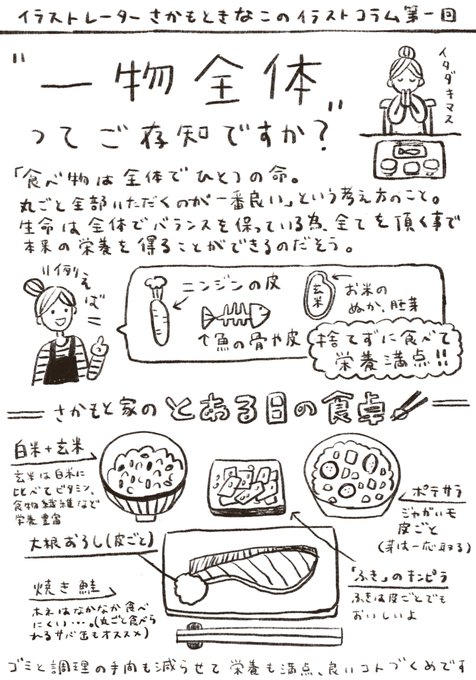 イラストレーター さかもときなこのイラストコラム第一回
"一物全体"
ってご存知ですか？
イタダキマス
「食べ物は全体でひとつの命。
丸ごと全部いただくのが一番良い」という考え方のこと。
生命は全体でバランスを保っている為、全てを頂く事で
本来の栄養を得ることができるのだそう。
例えば
ニンジンの皮
魚の骨や皮
玄米
お米の
ぬか、胚芽
捨てずに食べて
栄養満点!!
さかもと家の とある日の食卓
白米+玄米
玄米は白米に
比べてビタミン、
食物繊維など
栄養豊富
ポテサラ
ジャがいモ
皮ごと
(芽は一応取る)
大根おろし(皮ごと)
焼き鮭
ホネはなかなか食べ
にくい…。(丸ごと食べら
れるサバ缶もオススメ)
「ふき」のキンピラ
ふきは皮ごとでも
おいしいよ
ゴミと調理の手間も減らせて栄養も満点、良いコトづくめです